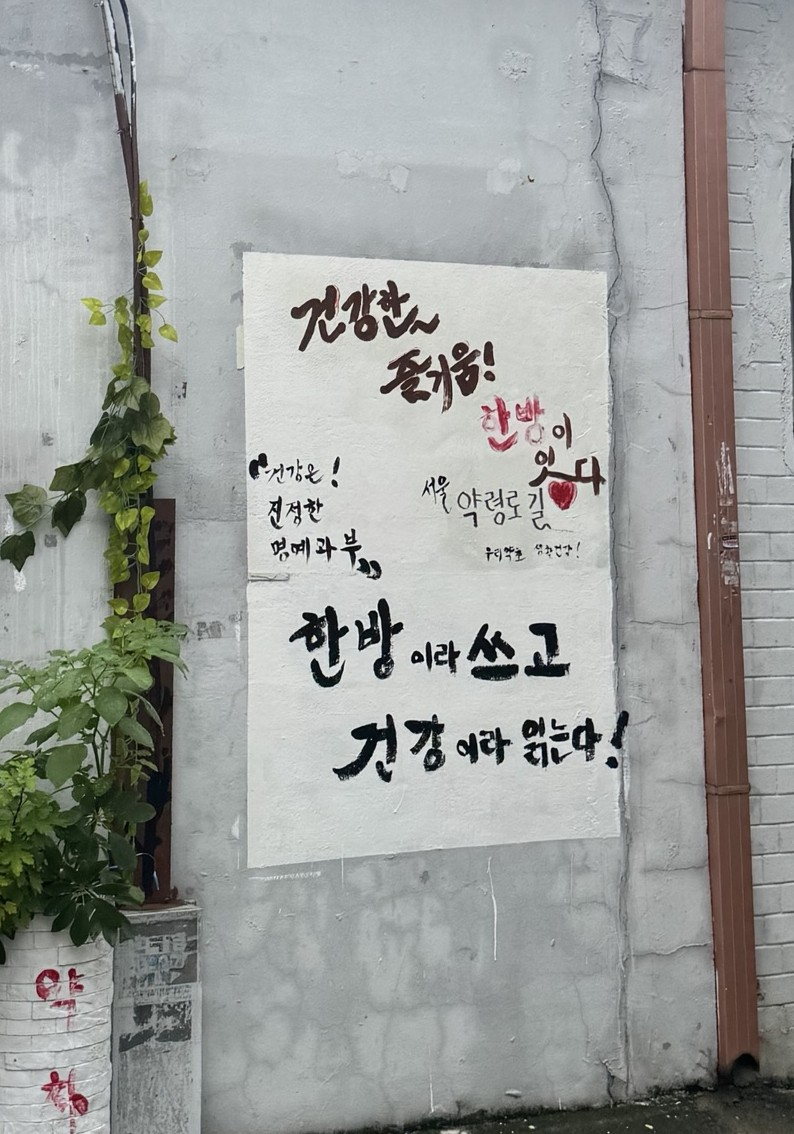 건강한~
즐거움!
한방이
잇다
"건강은!
진정한
명예과 부"
서울 약령로길
우리약초 담은건강!
한방이라 쓰고
건강이라 읽는다!
약